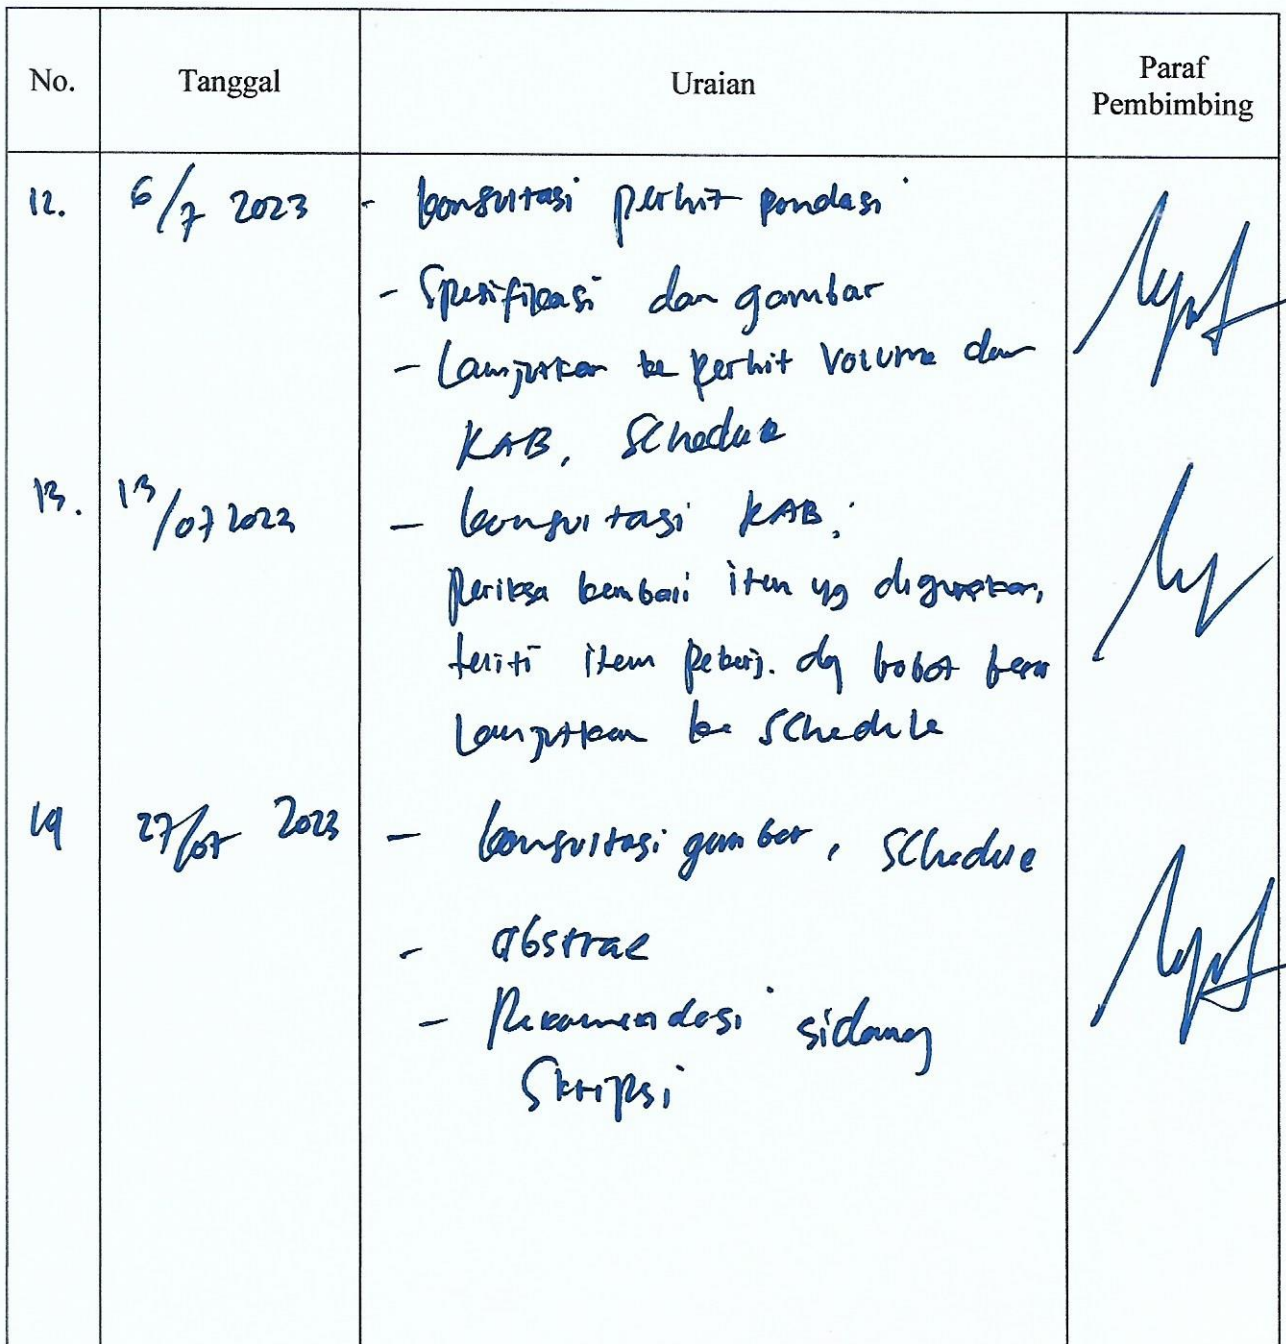 No. Tanggal Uraian Paraf Pembimbing
12. 6/7 2023 - konsultasi perhit pondasi
- Spesifikasi dan gambar
- Lanjutkan ke perhit volume dan
RAB, Schedule
13. 13/07 2023 - konsultasi RAB,
periksa kembali item yg digunakan,
teliti item pekerj. dg bobot besar
Lanjutkan ke schedule
14 27/07 2023 - konsultasi gambar, schedule
- abstrak
- Rekomendasi sidang
Skripsi